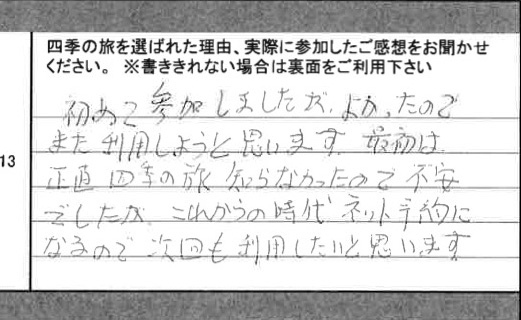 四季の旅を選ばれた理由、実際に参加したご感想をお聞かせ
ください。 ※書ききれない場合は裏面をご利用下さい
初めて参加しましたが、よかったので
また利用しようと思います 最初は
13
正直 四季の旅 知らなかったので 不安
でしたが これからの時代 ネット予約に
なるので 次回も利用したいと思います